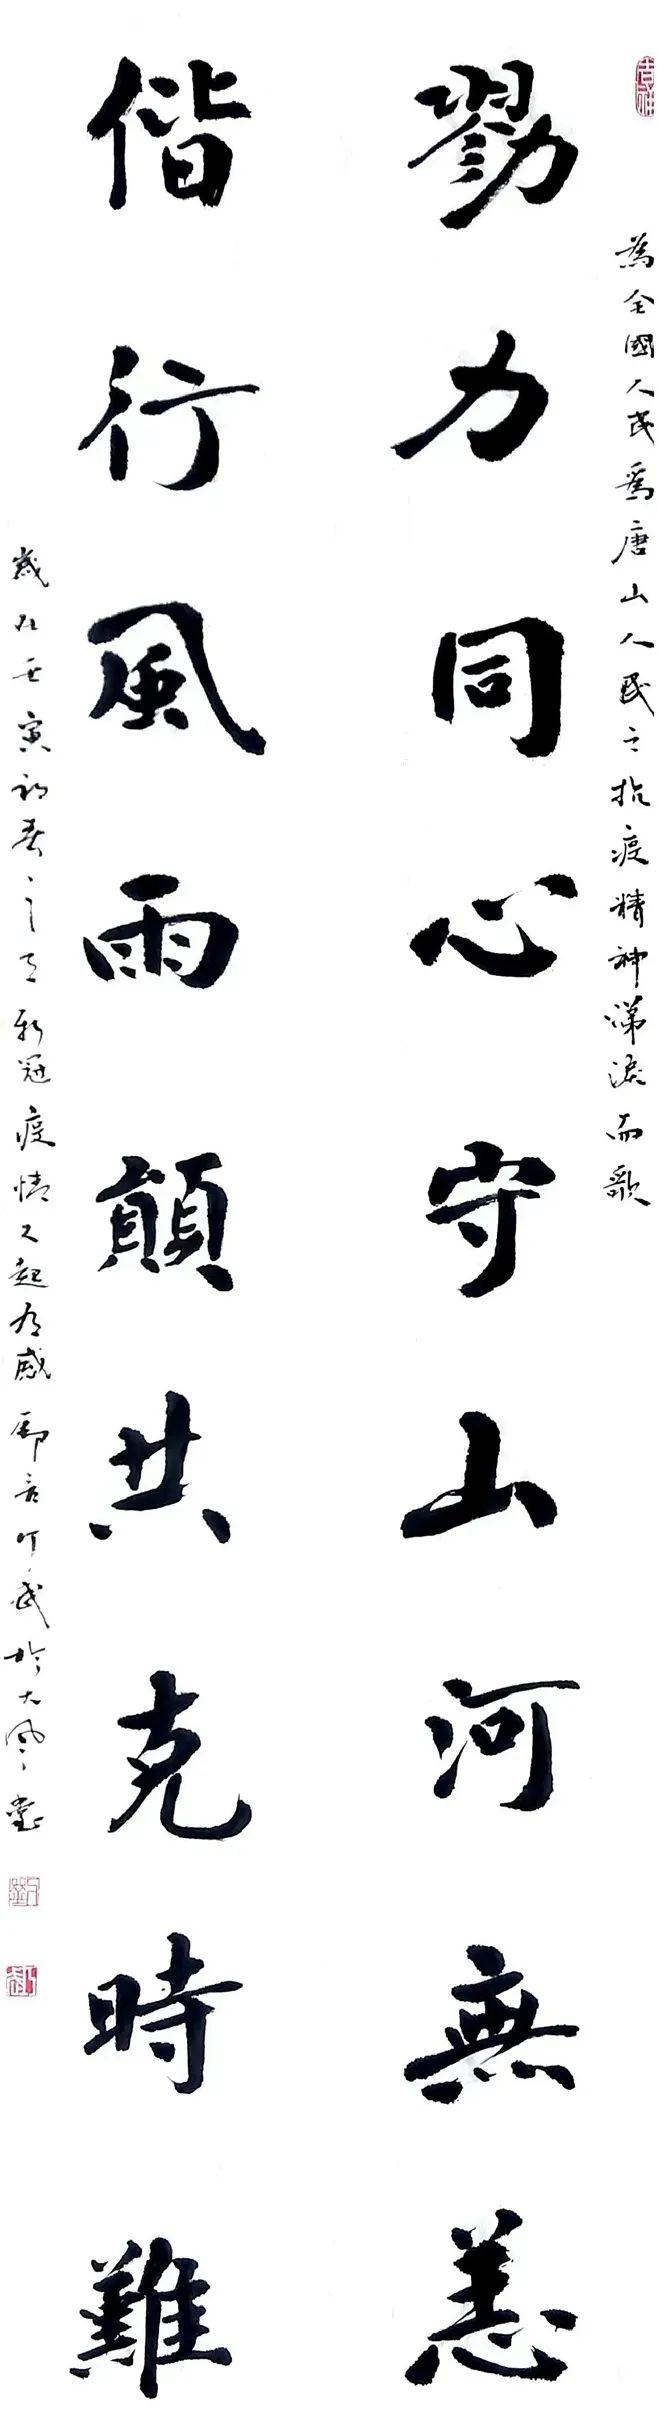 吉祥
為全國人民爲唐山人民之抗疫精神涕淚而歌
勠力同心守山河無恙
偕行風雨顛共克時難
歲在壬寅初春之新冠疫情又起有感 於大風堂